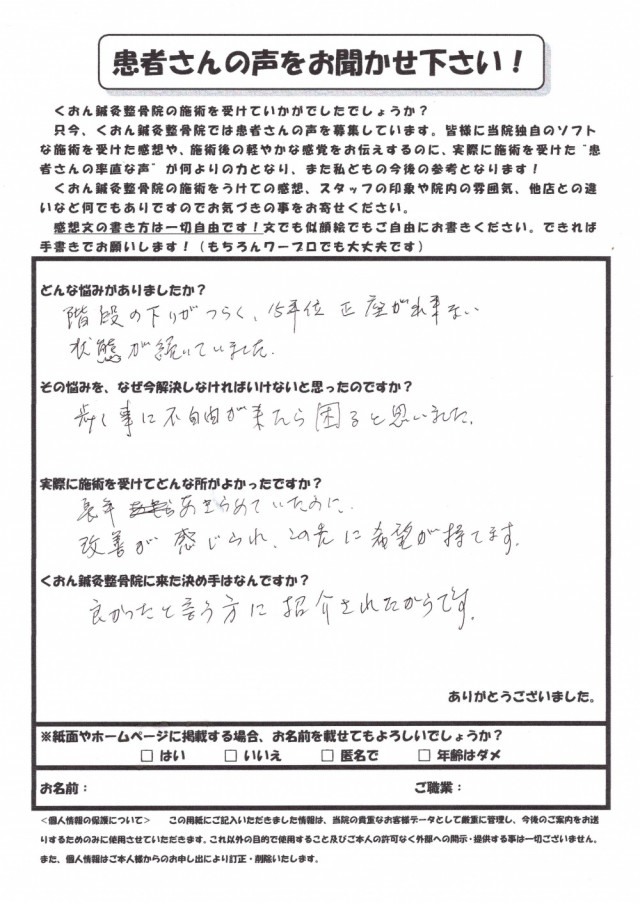 患者さんの声をお聞かせ下さい！
くおん鍼灸整骨院の施術を受けていかがでしたでしょうか？
只今、くおん鍼灸整骨院では患者さんの声を募集しています。皆様に当院独自のソフト
な施術を受けた感想や、施術後の軽やかな感覚をお伝えするのに、実際に施術を受けた“患
者さんの率直な声”が何よりの力となり、また私どもの今後の参考となります！
くおん鍼灸整骨院の施術をうけての感想、スタッフの印象や院内の雰囲気、他店との違
いなど何でもありですのでお気づきの事をお寄せください。
感想文の書き方は一切自由です！文でも似顔絵でもご自由にお書きください。できれば
手書きでお願いします！（もちろんワープロでも大丈夫です）
どんな悩みがありましたか？
階段の下りがつらく、15年位 正座が出来ない
状態が続いていました。
その悩みを、なぜ今解決しなければいけないと思ったのですか？
歩く事に不自由が来たら困ると思いました。
実際に施術を受けてどんな所がよかったですか？
長年 あきらめていたのに、
改善が 感じられ、この先に希望が持てます。
くおん鍼灸整骨院に来た決め手はなんですか？
良かったと言う方に 紹介されたからです。
ありがとうございました。
※紙面やホームページに掲載する場合、お名前を載せてもよろしいでしょうか？
□ はい □ いいえ □ 匿名で □ 年齢はダメ
お名前： ご職業：
＜個人情報の保護について＞ この用紙にご記入いただきました情報は、当院の貴重なお客様データとして厳重に管理し、今後のご案内をお送
りするためのみに使用させていただきます。これ以外の目的で使用すること及びご本人の許可なく外部への開示・提供する事は一切ございません。
また、個人情報はご本人様からのお申し出により訂正・削除いたします。